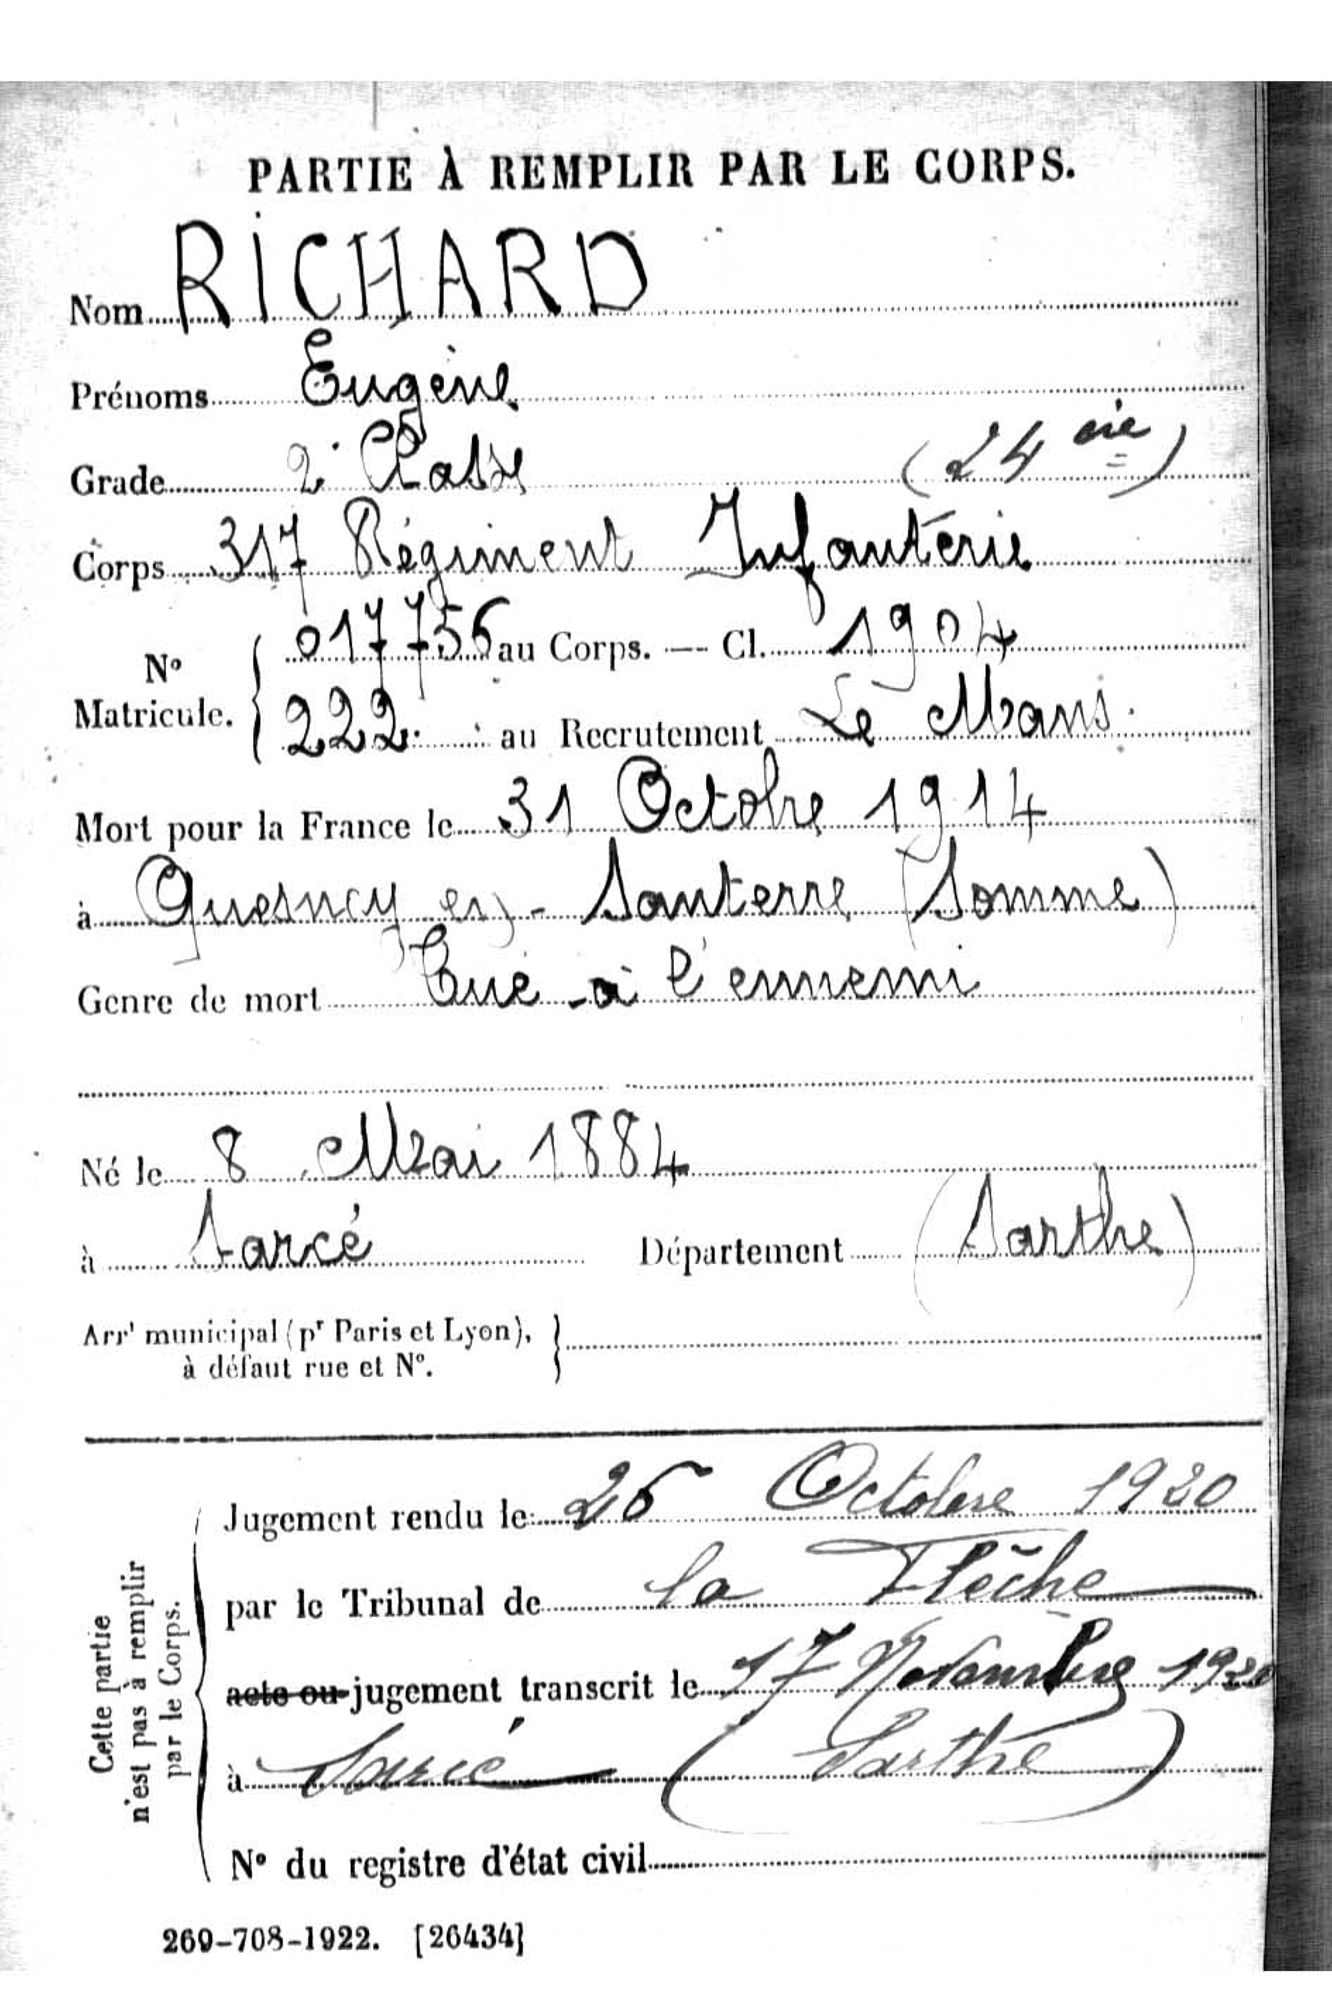 PARTIE À REMPLIR PAR LE CORPS.
Nom RICHARD
Prénoms Eugène
Grade 2e Classe (24 cie)
Corps 317 Régiment Infanterie
No Matricule. 017756 au Corps. — Cl. 1904
222 au Recrutement Le Mans.
Mort pour la France le 31 Octobre 1914
à Quesnoy en - Santerre (Somme)
Genre de mort Tué à l'ennemi
Né le 8 Mai 1884
à Sarcé Département (Sarthe)
Arrt municipal (pr Paris et Lyon),
à défaut rue et No.
Cette partie
n'est pas à remplir
par le Corps.
Jugement rendu le 26 Octobre 1920
par le Tribunal de la Flèche
acte ou jugement transcrit le 17 Novembre 1920
à Sarcé (Sarthe)
No du registre d'état civil
269-708-1922. [26434]